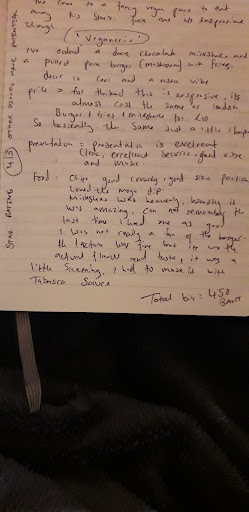 to a fancy vegan place to eat
this is expensive
though
"Veganerie"
ordered a dark chocolate milkshake and
a pulled pork burger (mushroom) with fries.
decor is fan and a nice vibe
price = for thailand this is expensive, its
almost cost the same as london
Burger + fries + milkshake for £10
So basically the same just a little cheaper
presentation = presentation is excellent
Clean, excellent service, good vibe
and music.
Food = Chips good crunchy, good size portion
Loved the mayo dip.
Milkshake was heavenly, honestly it
was amazing, can not remember the
last time I had one as good
I was not really a fan of the burger.
the texture was fine but it was the
actual flavour and taste, it was a
little sickening, I had to mask it with
Tabasco Sauce
Total bill: 450
BAHT
STAR RATING
4/5
OTHER DISHES HAVE POTENTIAL